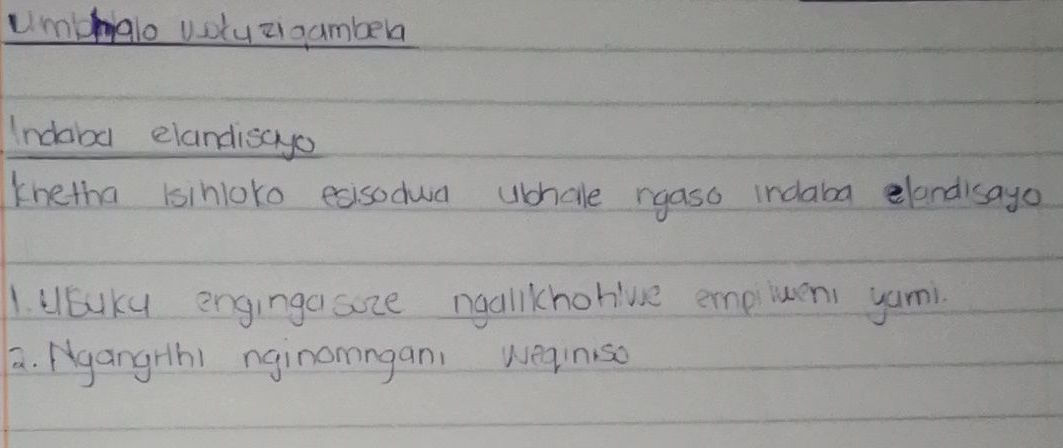 Umbhalo wotuzigambela
Indaba elandisayo
Khetha isihloko esisodwa ubhale ngaso indaba elandisayo
1. Usuku engingasoze ngalikhohlwe empilweni yami.
2. Ngangithi nginomngani weqiniso